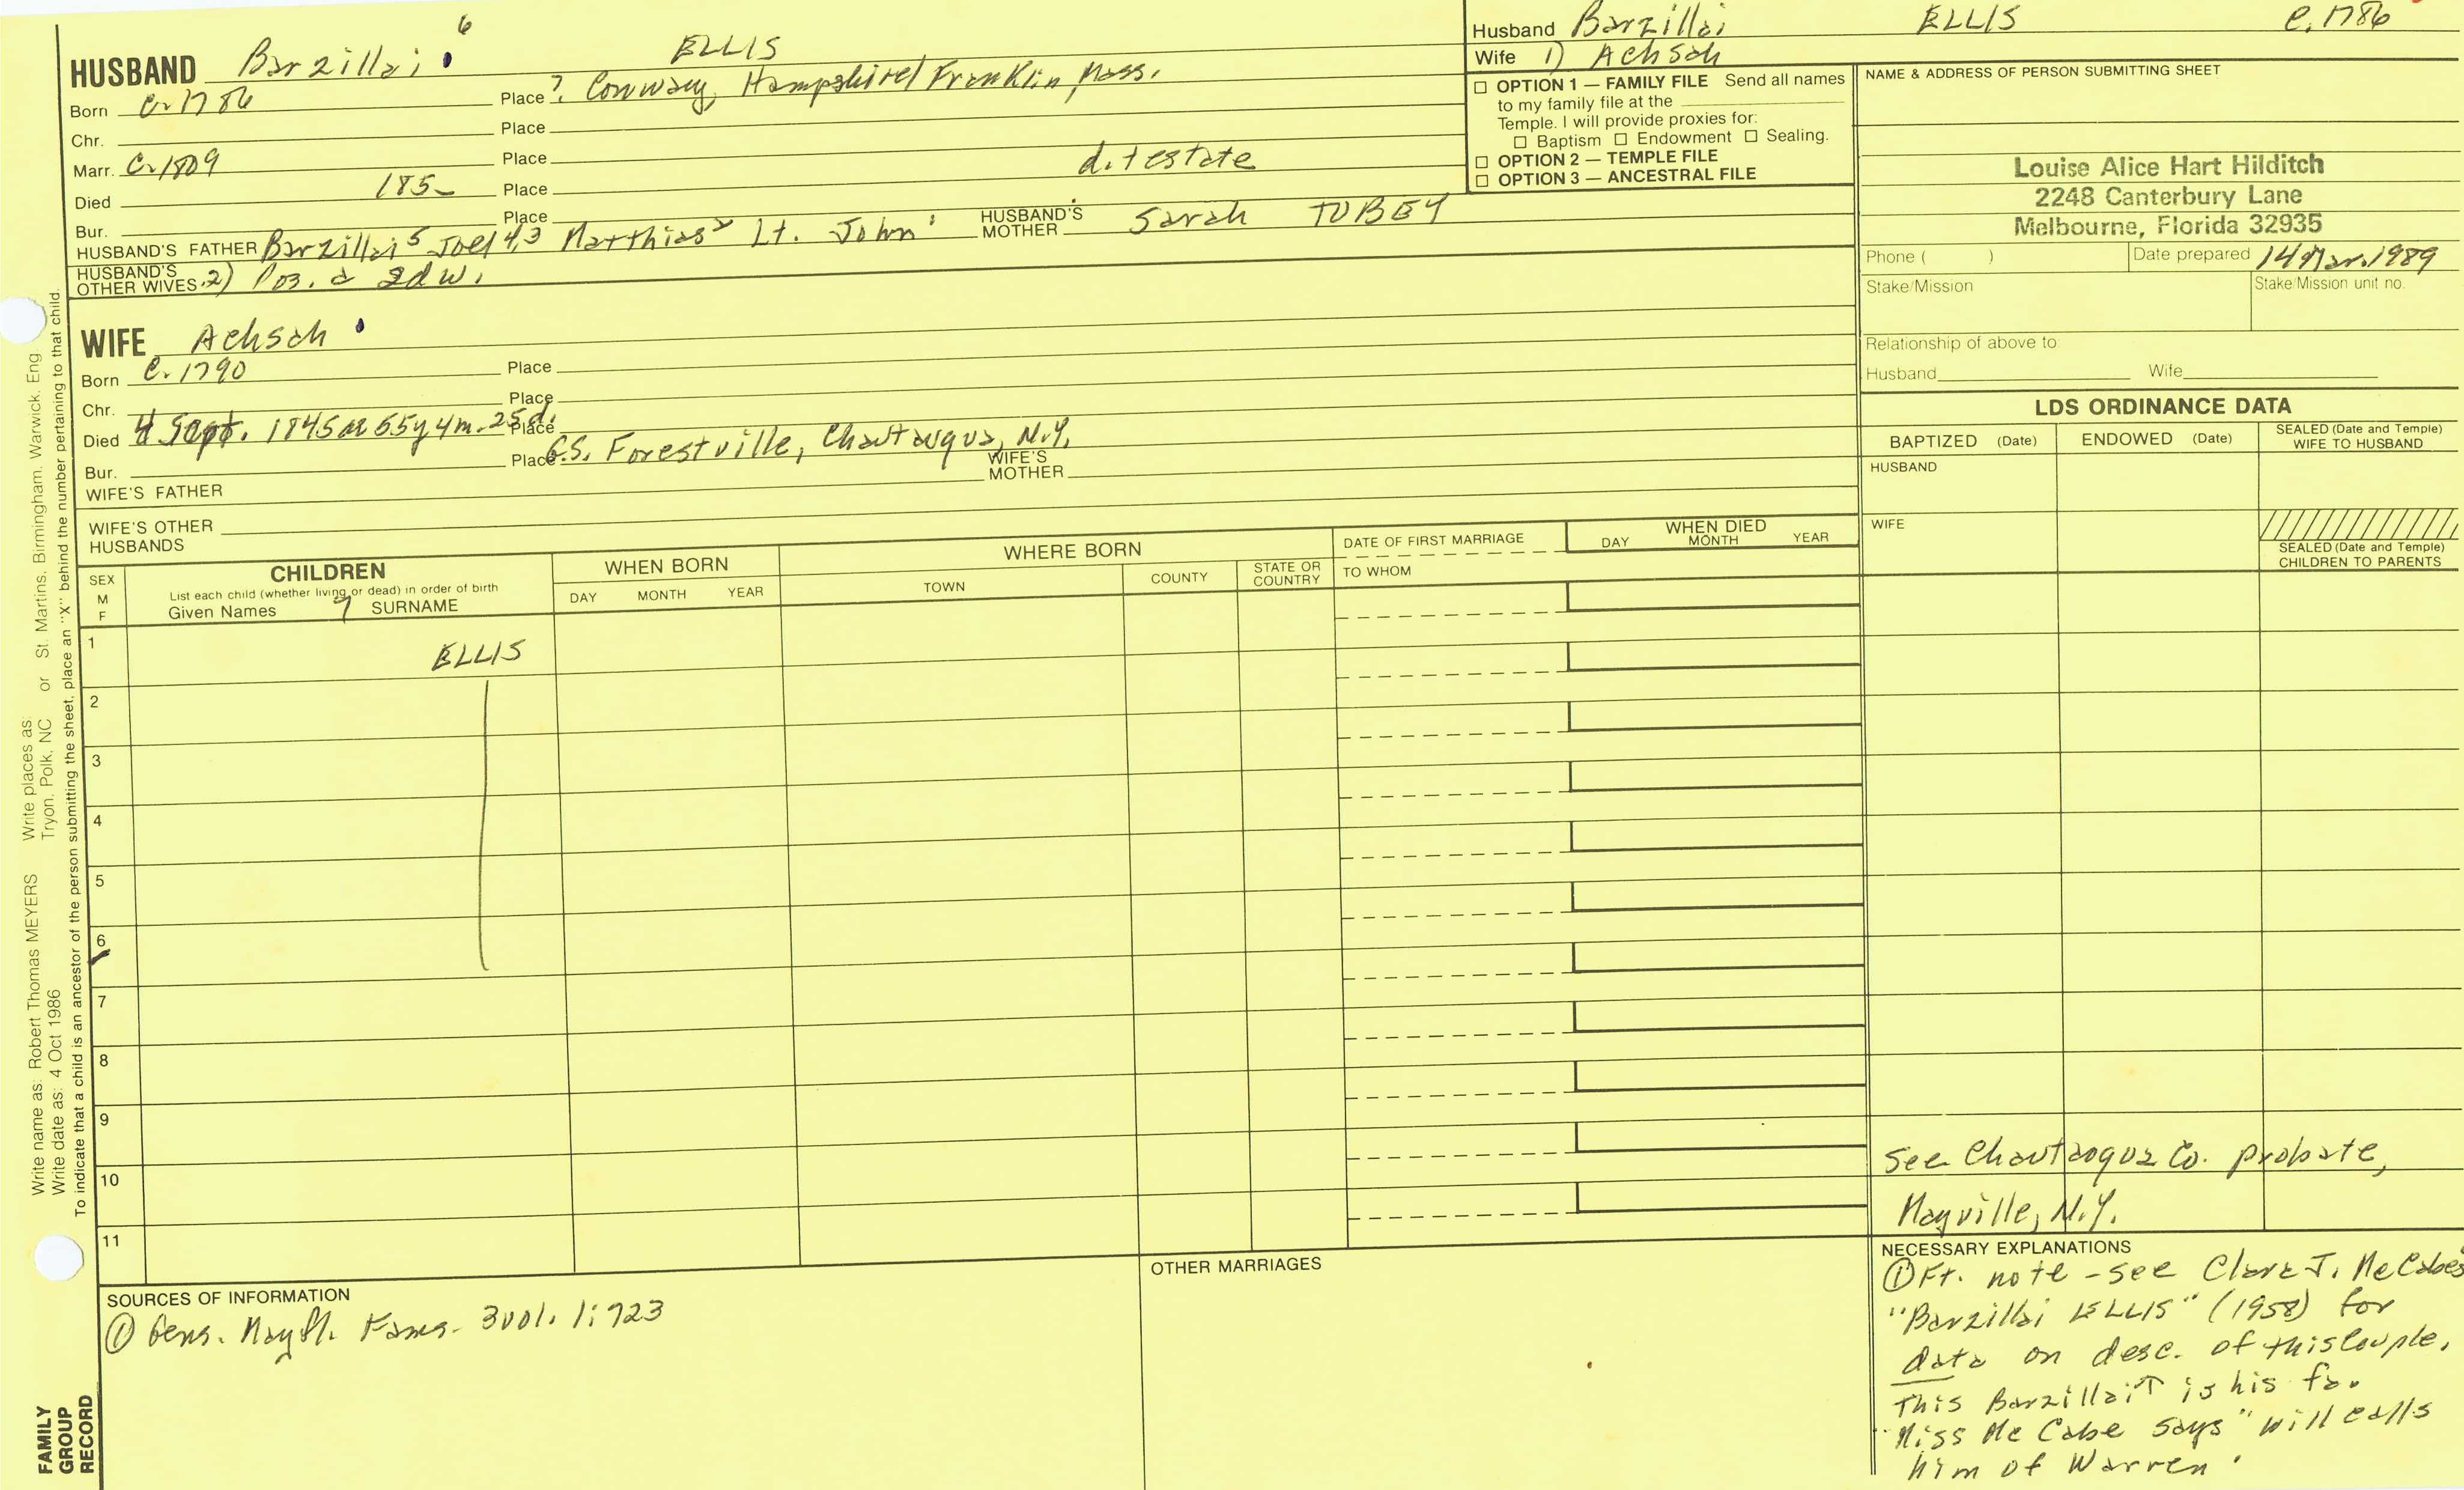 HUSBAND Barzillai 6 ELLIS
Born c. 1786 Place ? Conway, Hampshire/Franklin, Mass.
Chr. Place
Marr. c. 1809 Place
Died 185_ Place d. testate
Bur. Place
HUSBAND'S FATHER Barzillai 5 Joel 4,3 Matthias 2 Lt. John 1 HUSBAND'S MOTHER Sarah TOBEY
HUSBAND'S OTHER WIVES 2) Pos. a 2d w.
WIFE Achsah
Born c. 1790 Place
Chr. Place
Died 4 Sept. 1845 ae 55y 4m. 25d. Place
Bur. Place G.S. Forestville, Chautauqua, N.Y.
WIFE'S FATHER WIFE'S MOTHER
WIFE'S OTHER HUSBANDS
Husband Barzillai ELLIS c. 1786
Wife 1) Achsah
☐ OPTION 1 — FAMILY FILE Send all names
to my family file at the
Temple. I will provide proxies for:
☐ Baptism ☐ Endowment ☐ Sealing.
☐ OPTION 2 — TEMPLE FILE
☐ OPTION 3 — ANCESTRAL FILE
NAME & ADDRESS OF PERSON SUBMITTING SHEET
Louise Alice Hart Hilditch
2248 Canterbury Lane
Melbourne, Florida 32935
Phone ( ) Date prepared 14 Mar. 1989
Stake/Mission Stake/Mission unit no.
Relationship of above to:
Husband Wife
LDS ORDINANCE DATA
BAPTIZED (Date) ENDOWED (Date) SEALED (Date and Temple) WIFE TO HUSBAND
HUSBAND
WIFE
SEALED (Date and Temple) CHILDREN TO PARENTS
SEX M F
CHILDREN
List each child (whether living or dead) in order of birth
Given Names 7 SURNAME
WHEN BORN
DAY MONTH YEAR
WHERE BORN
TOWN COUNTY STATE OR COUNTRY
DATE OF FIRST MARRIAGE
TO WHOM
WHEN DIED
DAY MONTH YEAR
1 ELLIS
2
3
4
5
6
7
8
9
10
11
See Chautauqua Co. probate,
Mayville, N.Y.
SOURCES OF INFORMATION
① Gens. Mayfl. Fams. 3 vol. 1:723
OTHER MARRIAGES
NECESSARY EXPLANATIONS
① Ft. note - see Clara J. McCabes
"Barzillai ELLIS" (1958) for
data on desc. of this couple.
This Barzillai is his fa.
Miss McCabe says "will calls
him of Warren".
Write name as: Robert Thomas MEYERS Write places as: Tryon, Polk, NC or St. Martins, Birmingham, Warwick, Eng
Write date as: 4 Oct 1986
To indicate that a child is an ancestor of the person submitting the sheet, place an "X" behind the number pertaining to that child.
FAMILY
GROUP
RECORD